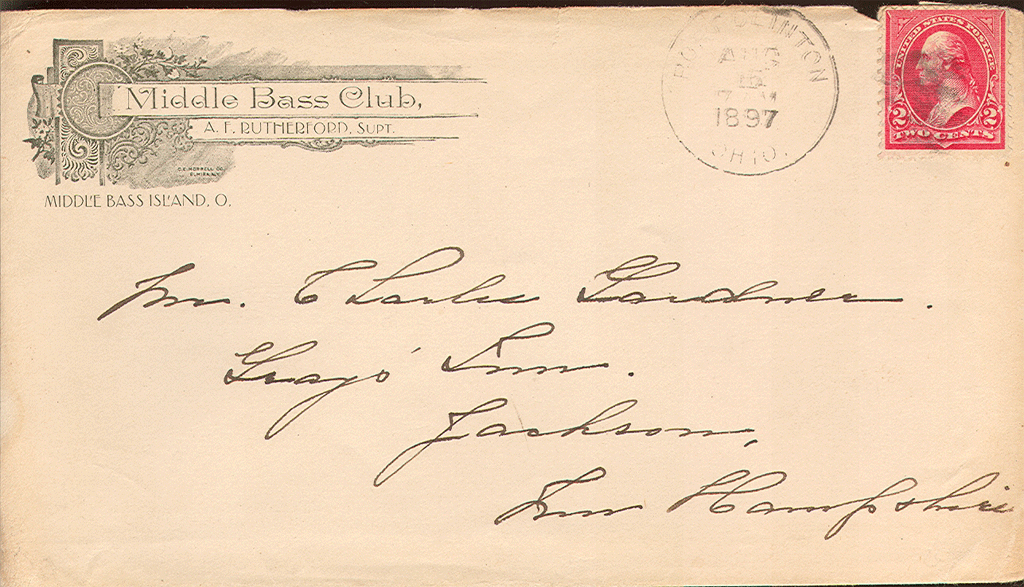 Middle Bass Club,
A. F. RUTHERFORD, SUPT.
MIDDLE BASS ISLAND, O.
PORT CLINTON
AUG
12
1897
OHIO.
UNITED STATES POSTAGE
2 2
TWO CENTS
Mr. Charles Gardner.
Grays' Inn.
Jackson,
New Hampshire